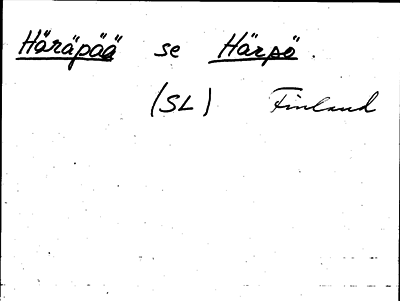 Häräpää se Härpö.
(SL) Finland